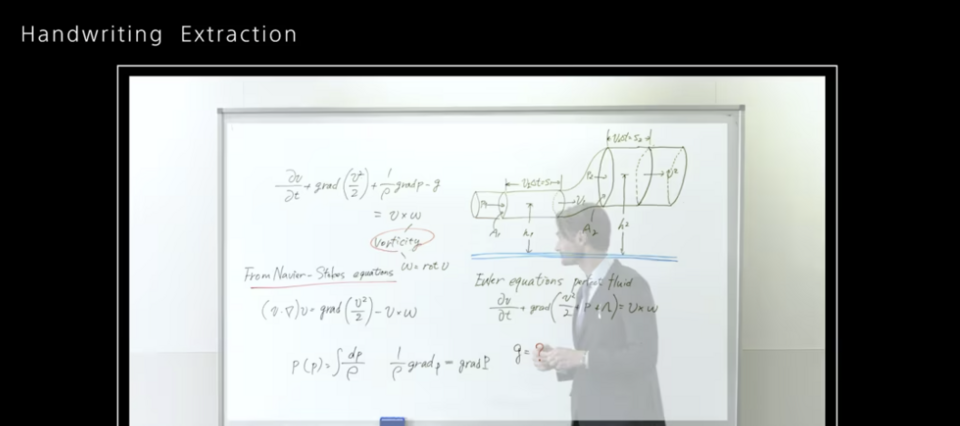 Handwriting Extraction
∂v/∂t + grad (v²/2) + 1/ρ grad p - g
= v × ω
Vorticity
ω = rot v
From Navier-Stokes equations
(v·∇)v = grad (v²/2) - v × ω
P(p) = ∫ dp/ρ    1/ρ grad p = grad P
A₁ h₁ A₂ h²
Euler equations perfect fluid
∂v/∂t + grad (v²/2 + P + Λ) = v × ω
g = ?